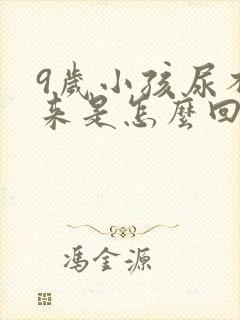 9歲小孩尿不
來是怎麼回
馮金源